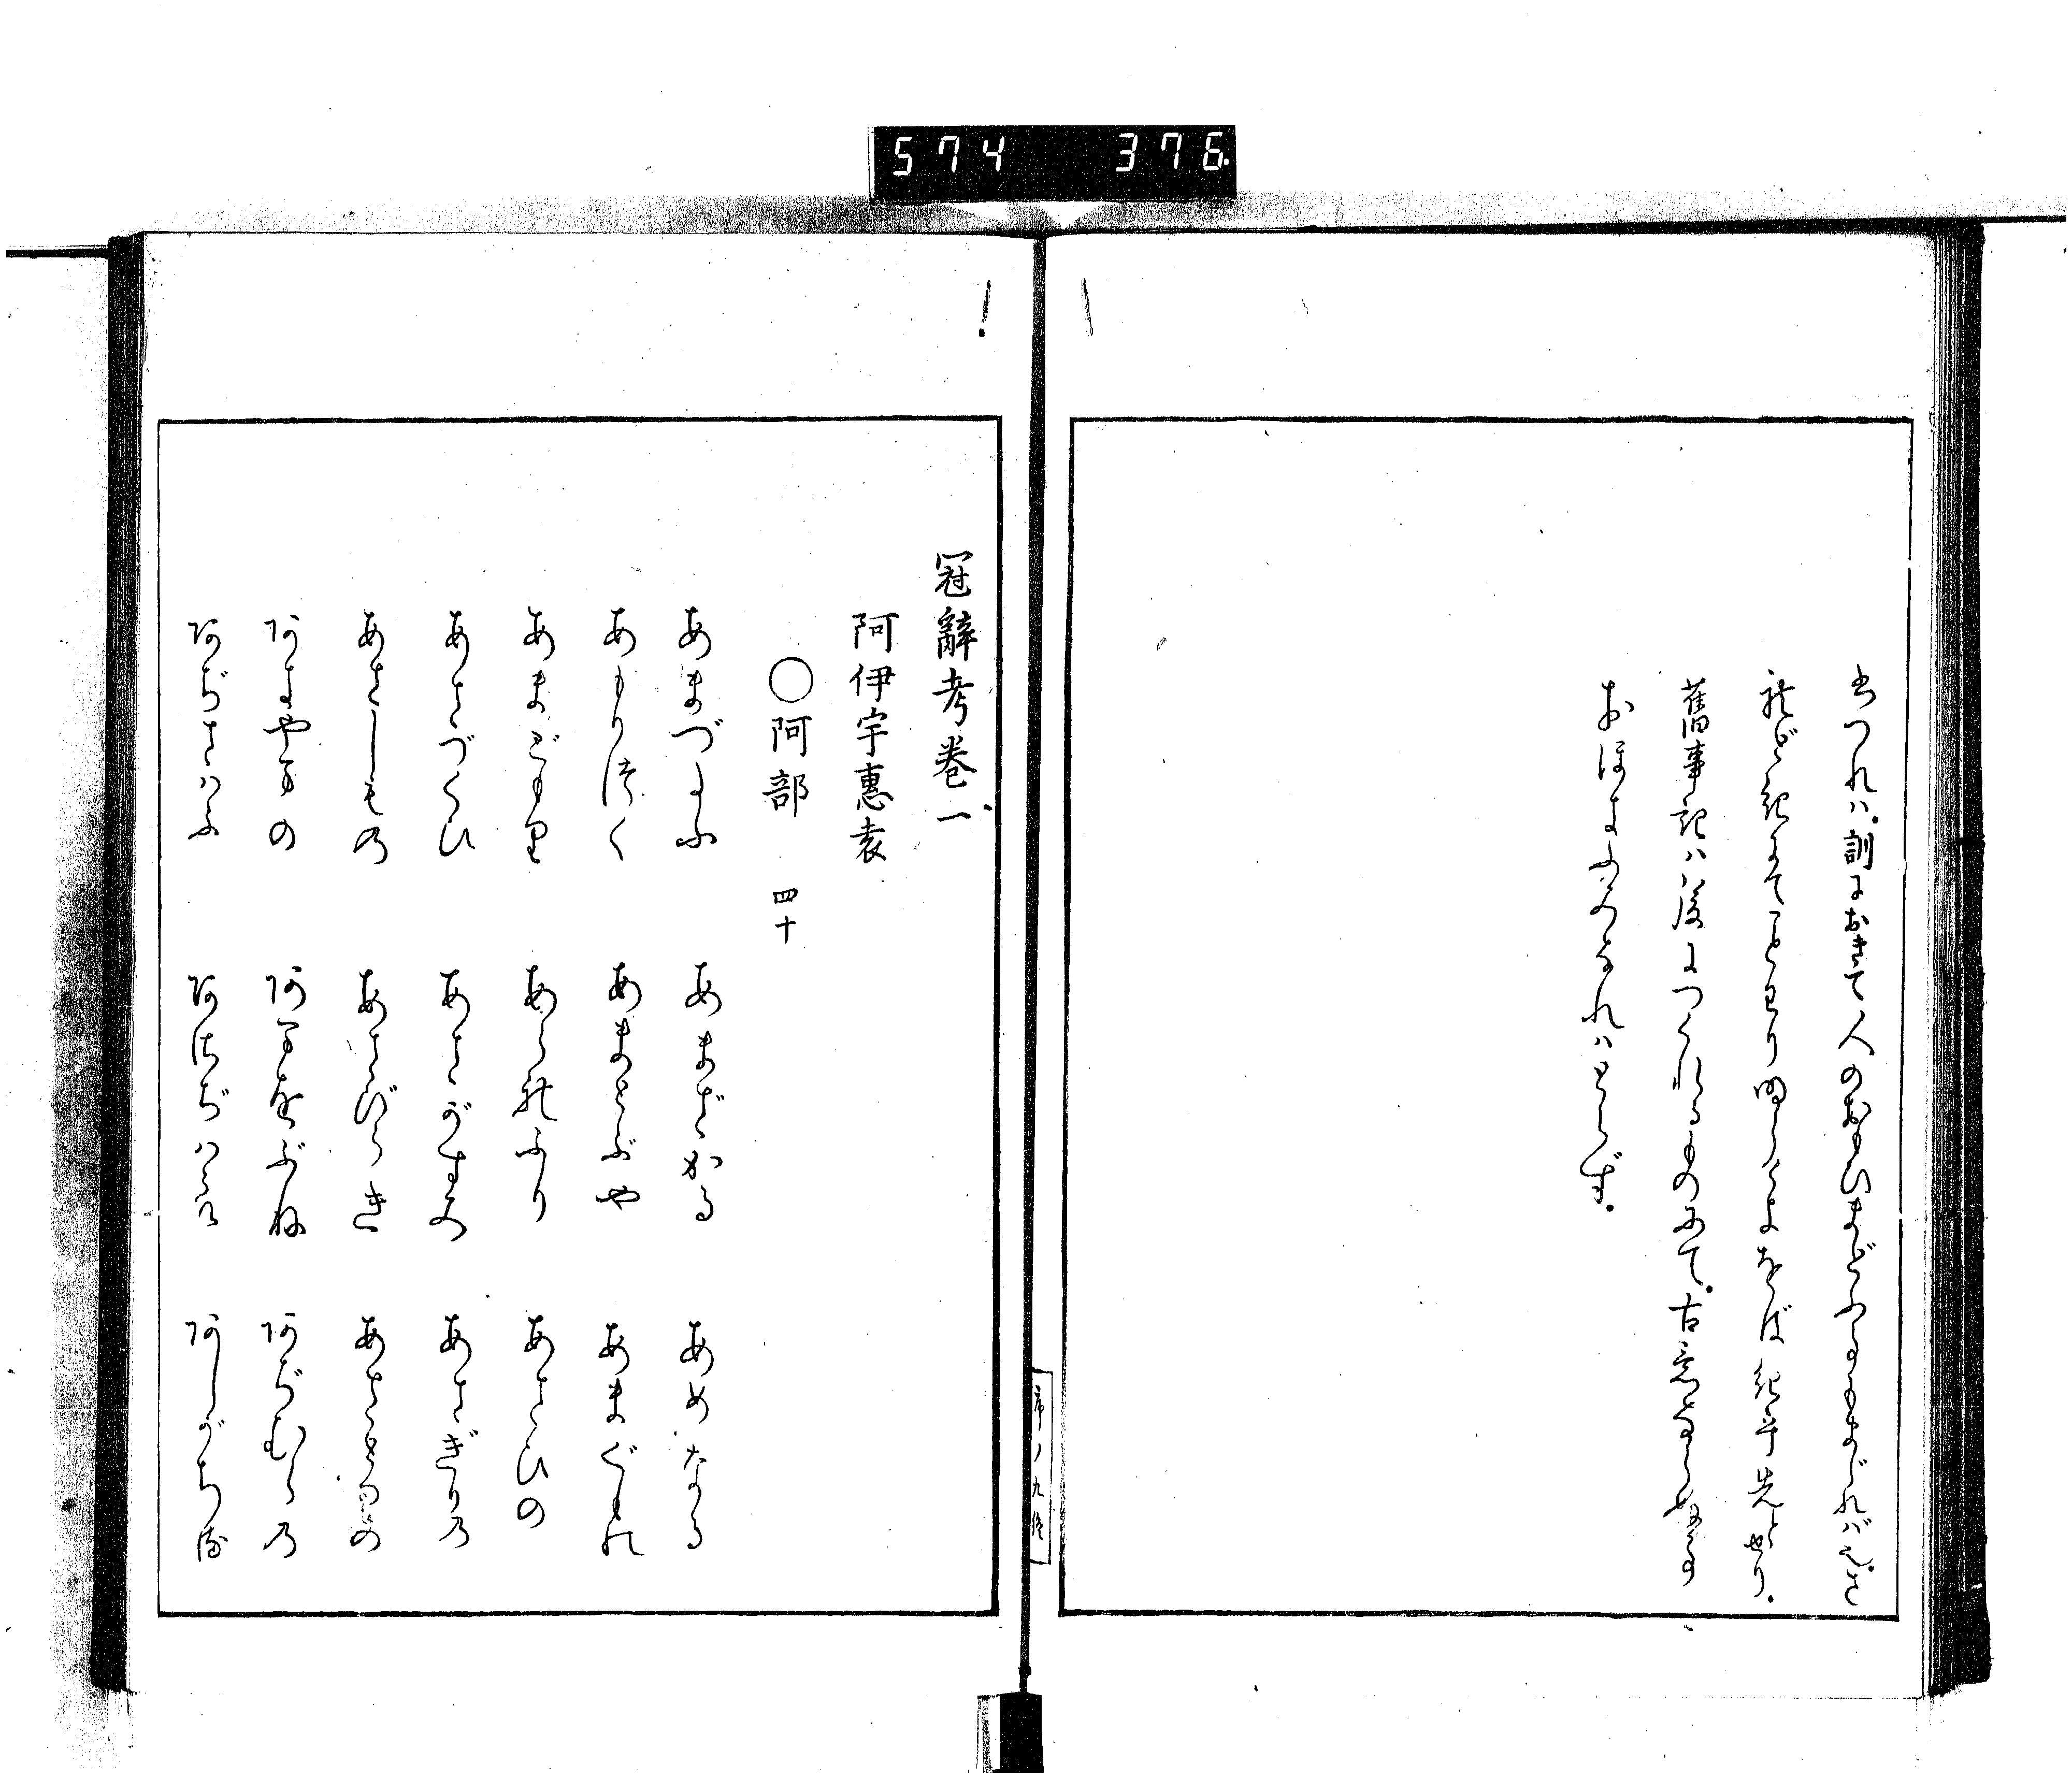 出つれハ.訓におきて人のおもひまどふるもまじれバ也.さ
れど紀にてことわり明らをば紀先とせり.
舊事記ハ後につくれるものにて.古意ならぬ事
おほきふみなれハとらず.
序ノ九終
冠辭考卷一
阿伊宇惠袁
○阿部 四十
あまづたふ あまざかる あめなる
あもりつく あまとぶや あまぐもの
あまごもり あられふり あさひの
あさづくひ あさがすみ あさぎりの
あさしもの あさびらき あさとりの
あまをぶね あぢむらの
あぢさハふ あさぢハら あしがちる
574 376